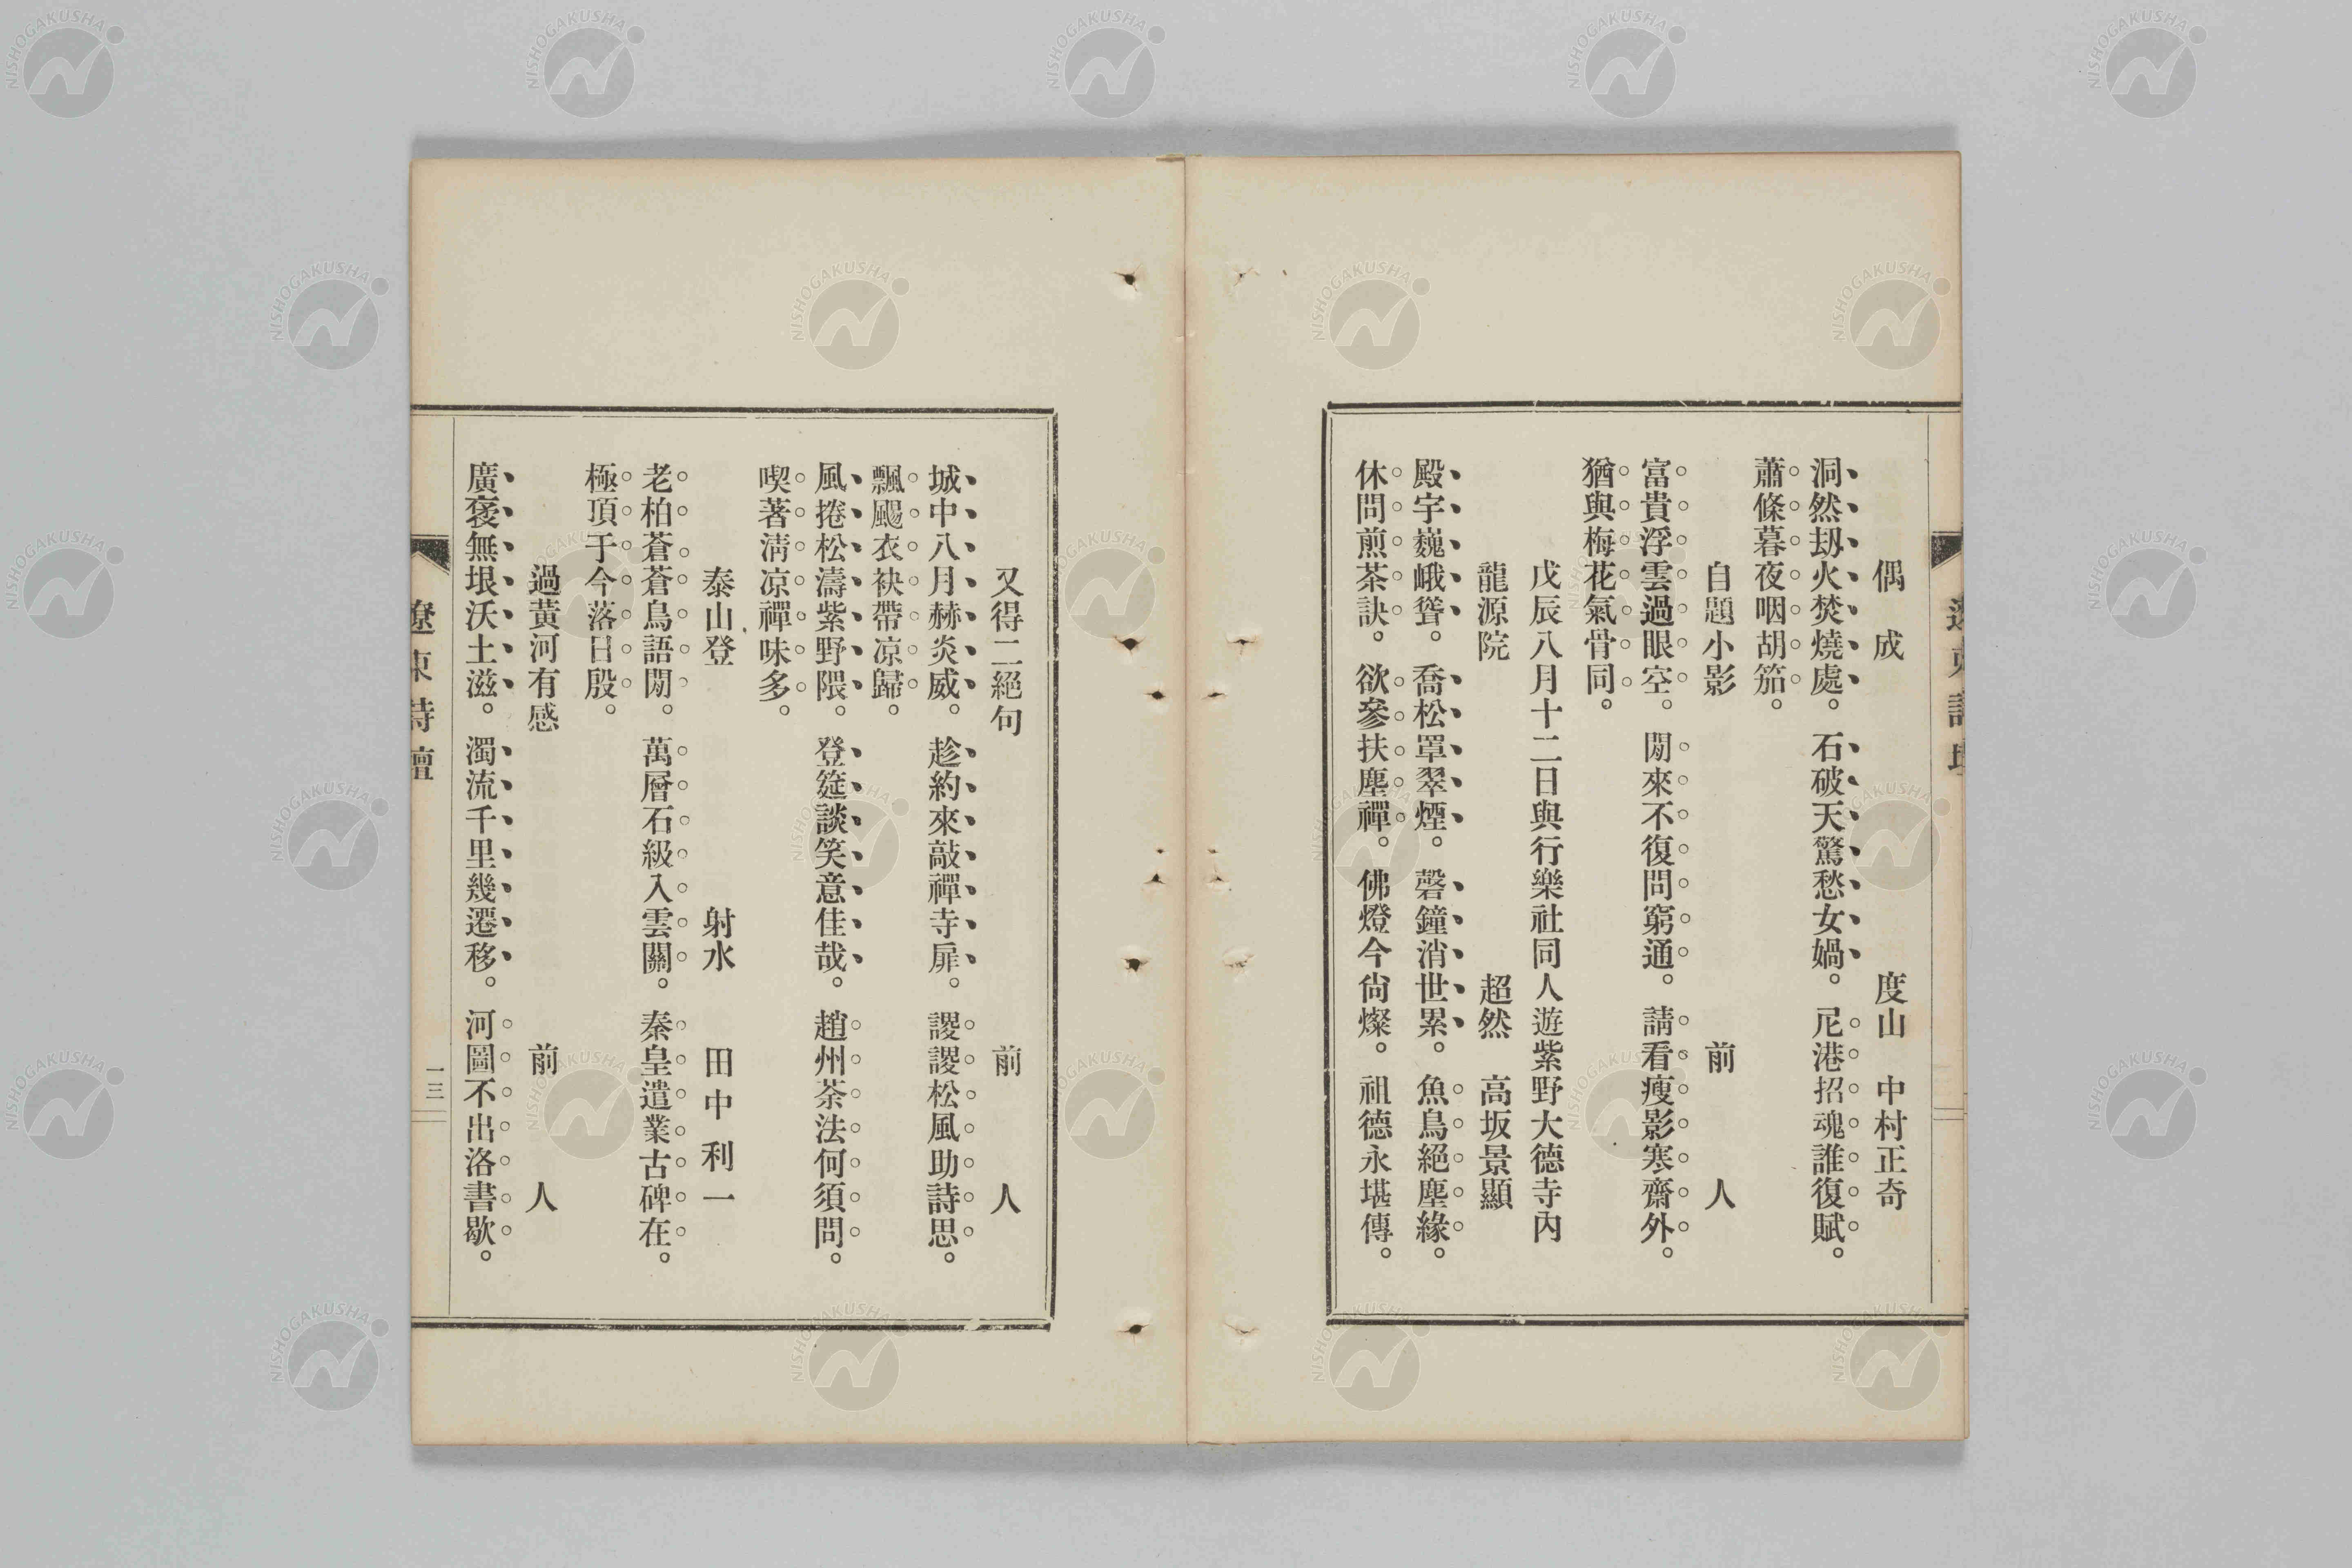 偶成　度山　中村正奇
洞然刼火焚燒處。石破天驚愁女媧。尼港招魂誰復賦。
蕭條暮夜咽胡笳。
自題小影　前人
富貴浮雲過眼空。閒來不復問窮通。請看瘦影寒齋外。
猶與梅花氣骨同。
戊辰八月十二日與行樂社同人遊紫野大德寺內
龍源院　超然　高坂景顯
殿宇巍峨聳。喬松罩翠煙。磬鐘消世累。魚鳥絕塵緣。
休問煎茶訣。欲參扶塵禪。佛燈今尙燦。祖德永堪傳。
又得二絕句　前人
城中八月赫炎威。趁約來敲禪寺扉。謖謖松風助詩思。
飄颺衣袂帶凉歸。
風捲松濤紫野隈。登筵談笑意佳哉。趙州茶法何須問。
喫著淸凉禪味多。
泰山登　射水　田中利一
老柏蒼蒼鳥語閒。萬層石級入雲關。秦皇遣業古碑在。
極頂于今落日殷。
過黃河有感　前人
廣袤無垠沃土滋。濁流千里幾遷移。河圖不出洛書歇。
遼東詩壇
一三
NISHOGAKUSHA